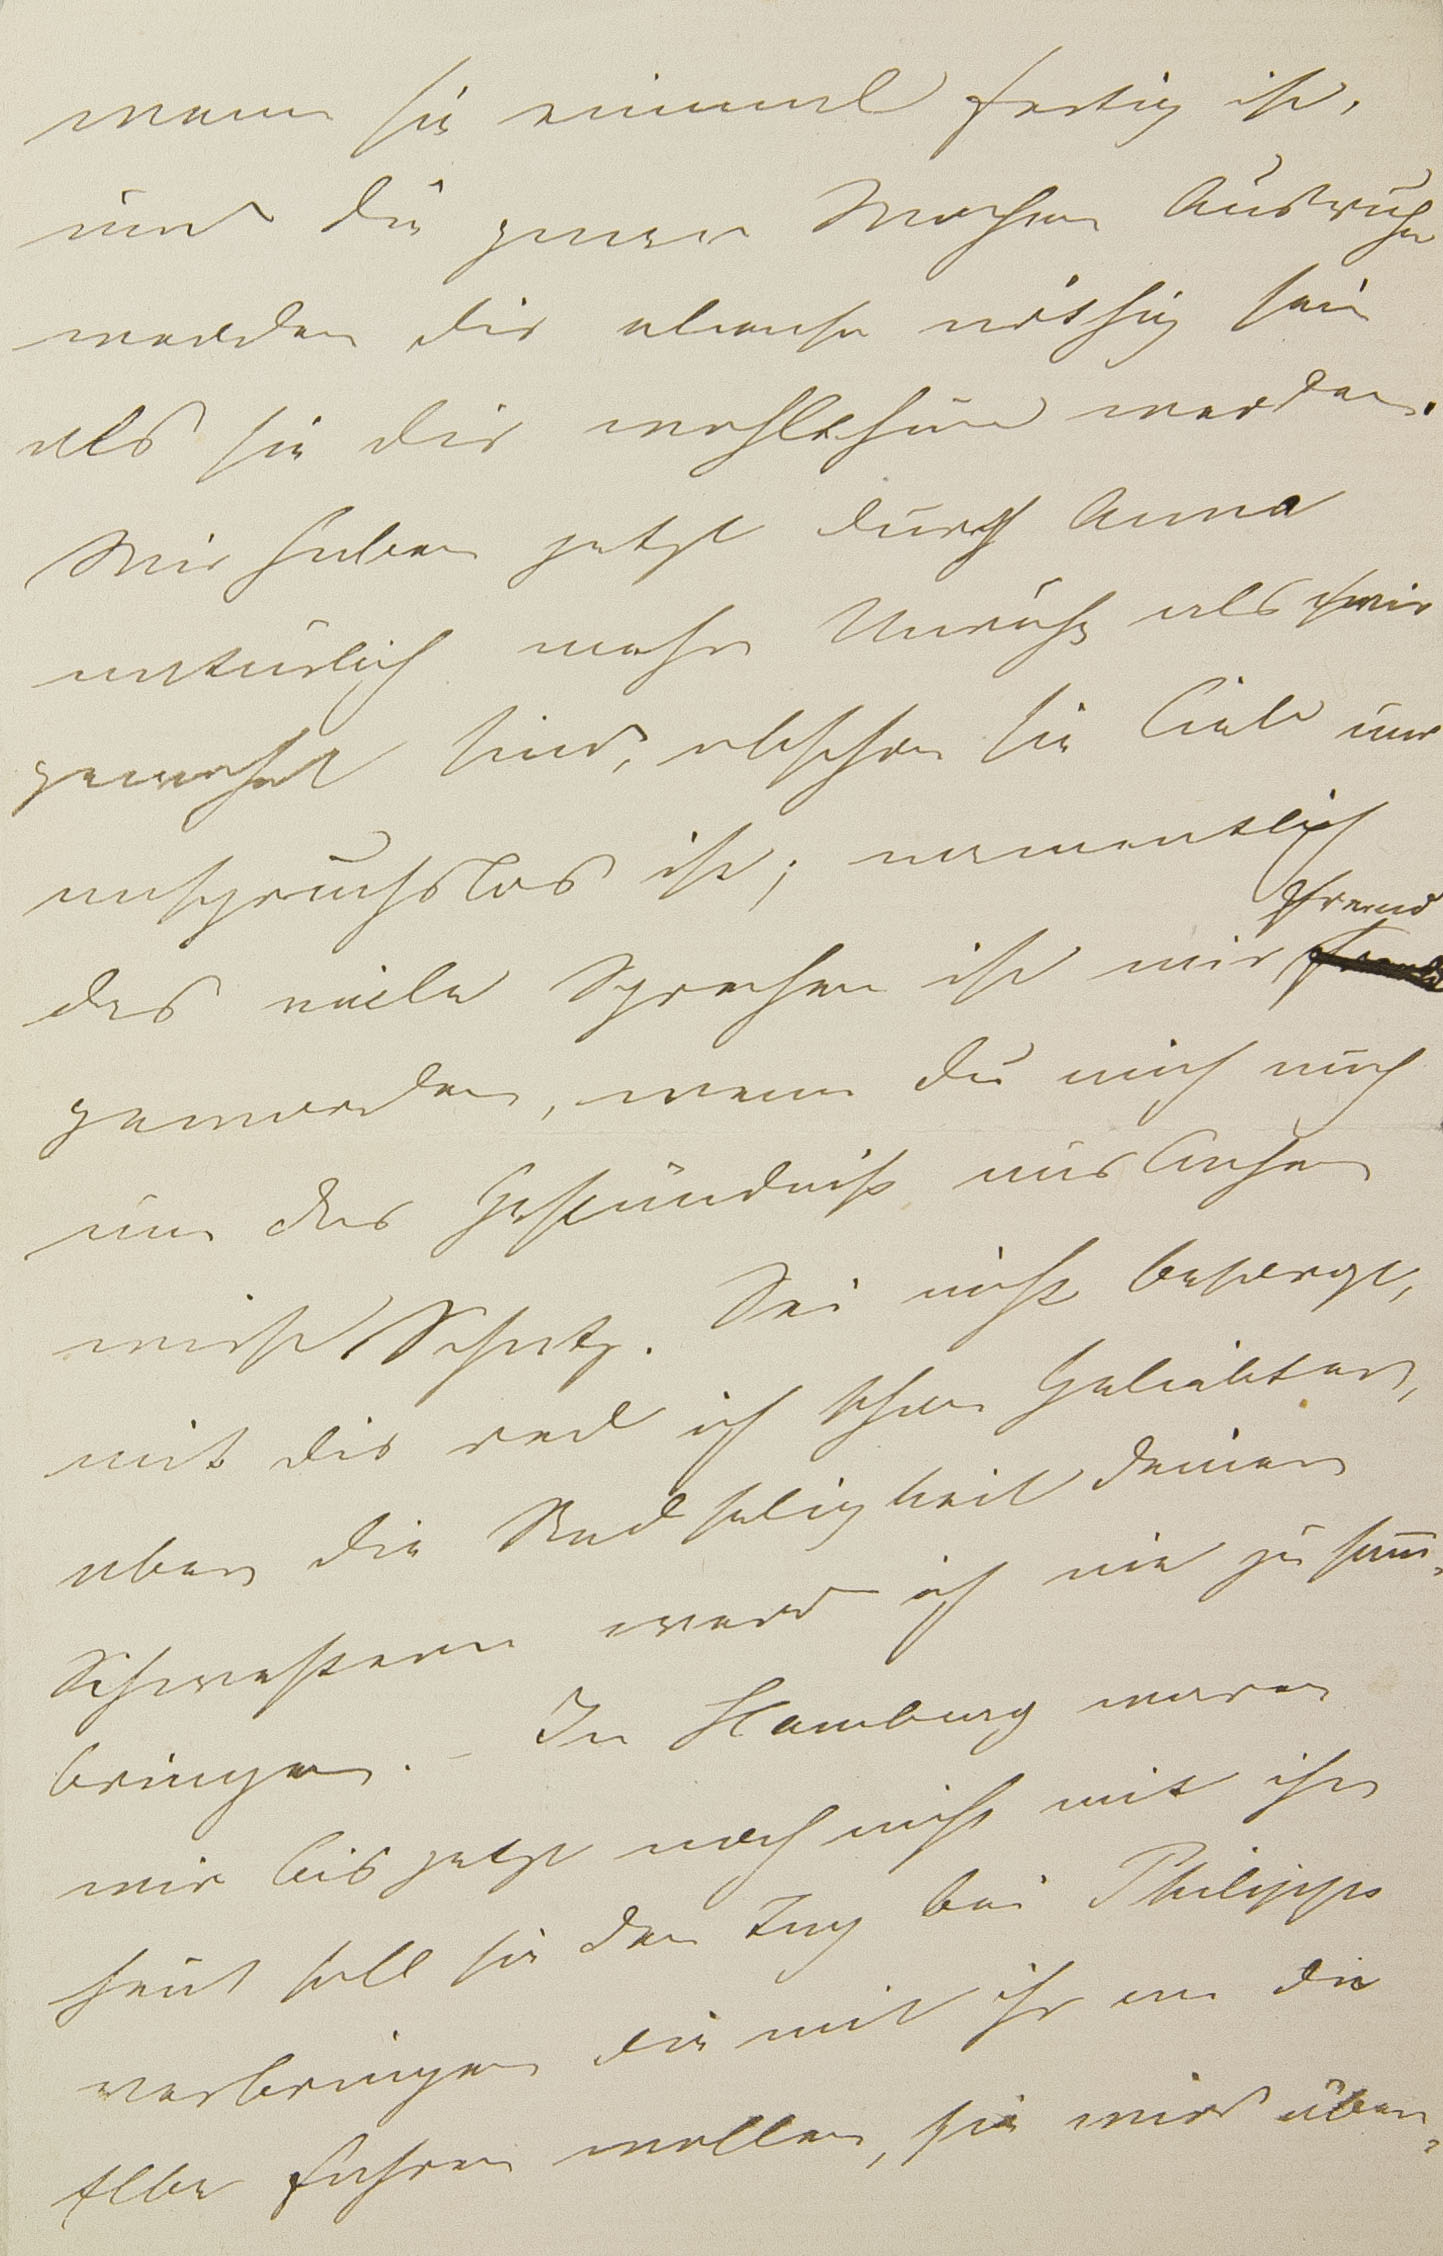 wenn sie einmal fertig ist,
und die paar Wochen Ausruhn
werden dir ebenso nöthig sein
als sie dir wohlthun werden.
Wir haben jetzt durch Anna
natürlich mehr Unruhe als wir
gewohnt sind, obschon sie lieb und
anspruchslos ist; namentlich
das viele Sprechen ist mir fremd
geworden, wenn du mich auch
um das Geständniß auslachen
wirst Schatz. Sei nicht besorgt,
mit dir red ich schon Geliebter,
aber die Redseligkeit deiner
Schwestern werd ich nie zu stand
bringen. – In Hamburg waren
wir bis jetzt noch nicht mit ihr
heut soll sie den Tag bei Philipps
verbringen die mit ihr an die
Elbe fahren wollen, sie wird über-